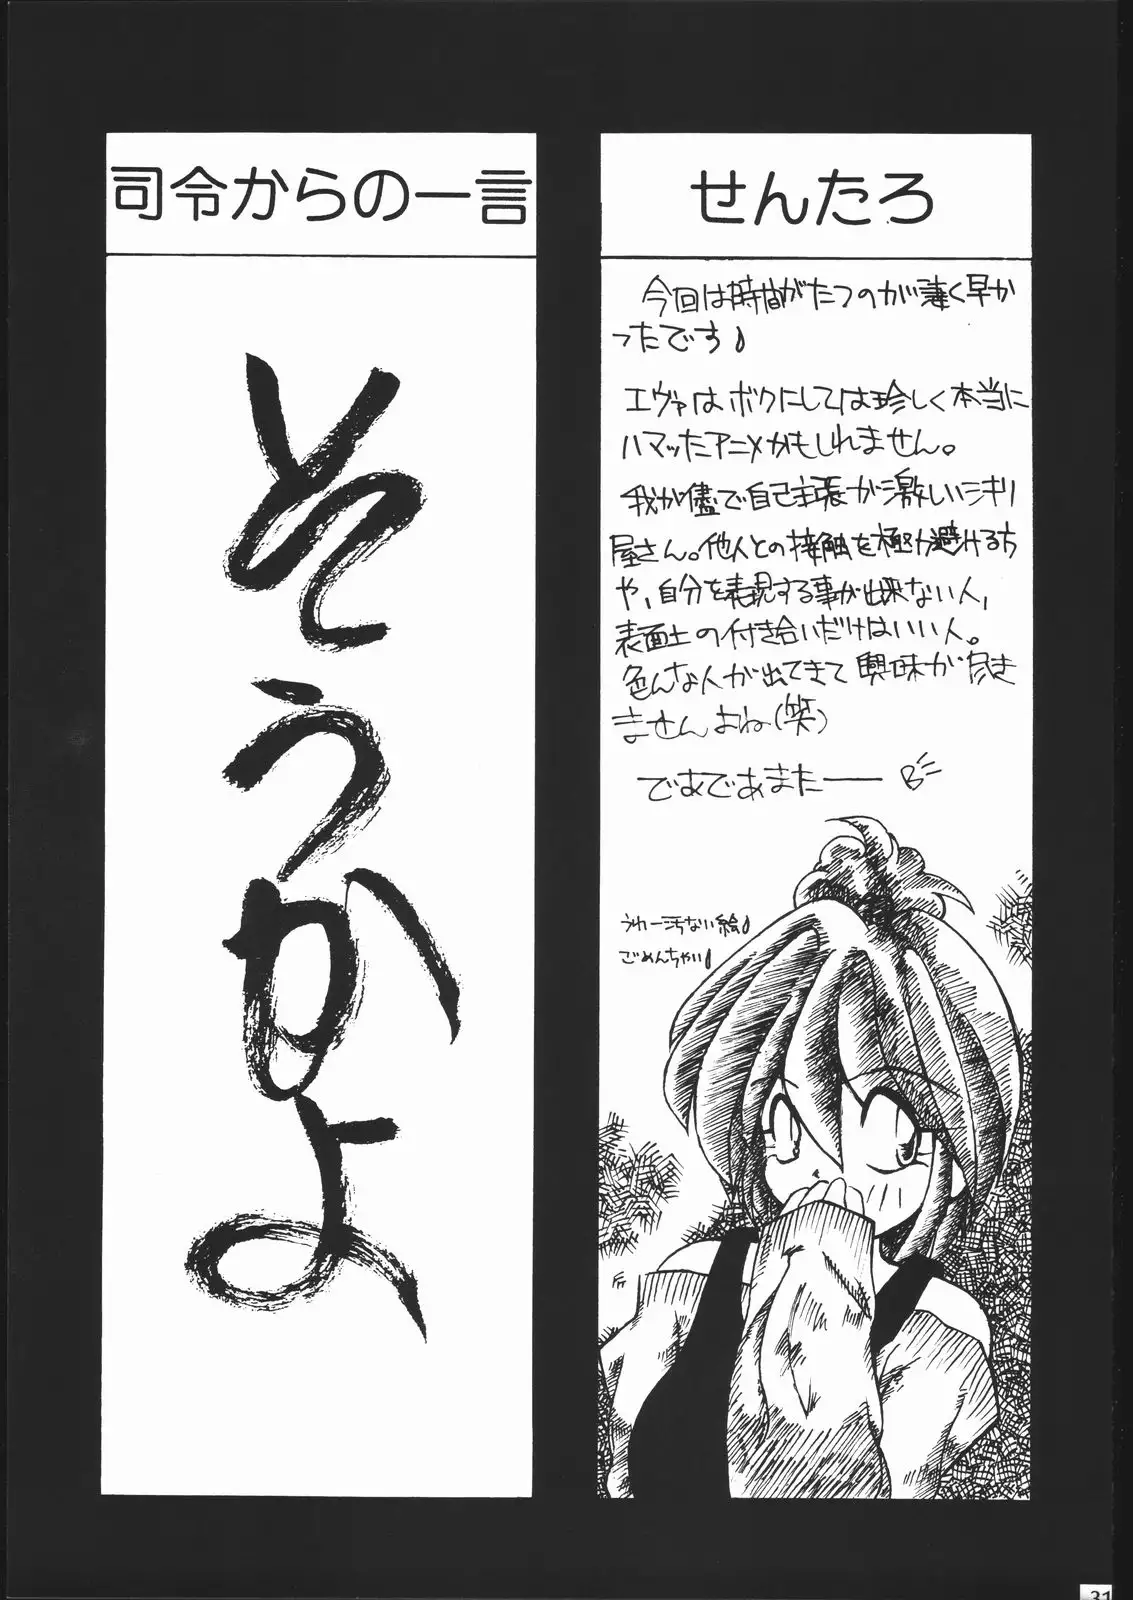 せんたろ
今回は時間がたつのが凄く早か
ったです♪
エヴァはボクにしては珍しく本当に
ハマッたアニメかもしれません。
我が儘で自己主張が激しいシキリ
屋さん。他人との接触を極力避ける方
や、自分を表現する事が出来ない人、
表面上の付き合いだけはいい人。
色んな人が出てきて興味が尽き
ませんよね(笑)
であであまたーー
うわー汚ない絵♪
ごめんちゃい♪
司令からの一言
そうかよ
31